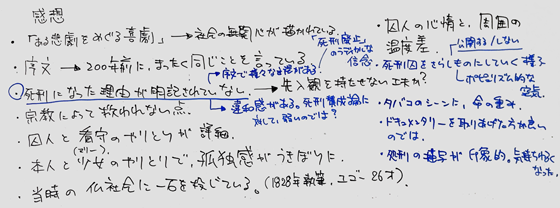 感想
・「ある悲劇をめぐる喜劇」→社会の無関心が描かれている。
・序文→200年前に、まったく同じことを言っている
「死刑廃止」のうらがわな信念。
序文で様々な主張がある。
・死刑になった理由が明記されていない。→先入観を持たせない工夫か?
違和感がある。死刑賛成論に対して、弱いのでは?
・宗教によって救われない点。
・囚人と看守のやりとりが詳細。
・本人と少女(マリー)のやりとりで、孤独感がうきぼりに。
・当時の仏社会に一石を投じている。(1828年執筆、ユゴー26才)
・囚人の心情と、周囲の温度差。
公開する/しない
・死刑囚をさらしものにしていく様子
ポピュリズム的な空気
・タバコのシーンに、命の重み。
・ドキュメンタリーを取りあげた方が良いのでは。
・処刑の描写が印象的。気持ちわるくなった。